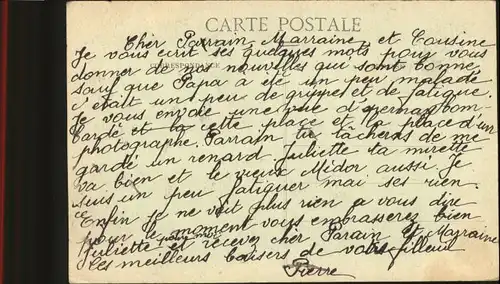 CARTE POSTALE
Cher Parrain Marraine et Cousine
Je vous ecrit ses quelques mots pour vous
CORRESPONDANCE
donner de nos nouvelles qui sont bonne
sauf que Papa a été un peu malade
c'était un peu de grippe et de fatigue.
Je vous envoie une vue d'Epernay bom-
bardé et la cette place et la place d'un
photographe. Parrain tu tâcheras de me
gardé un renard Juliette ta mirette
va bien et le vieux Midor aussi Je
suis un peu fatiguer mai ses rien.
Enfin Je ne voit plus rien a vous dire
pour le moment vous embrasserez bien
Juliette et recever cher Parain et Marraine
Les meilleurs baisers de votre filleul
Pierre